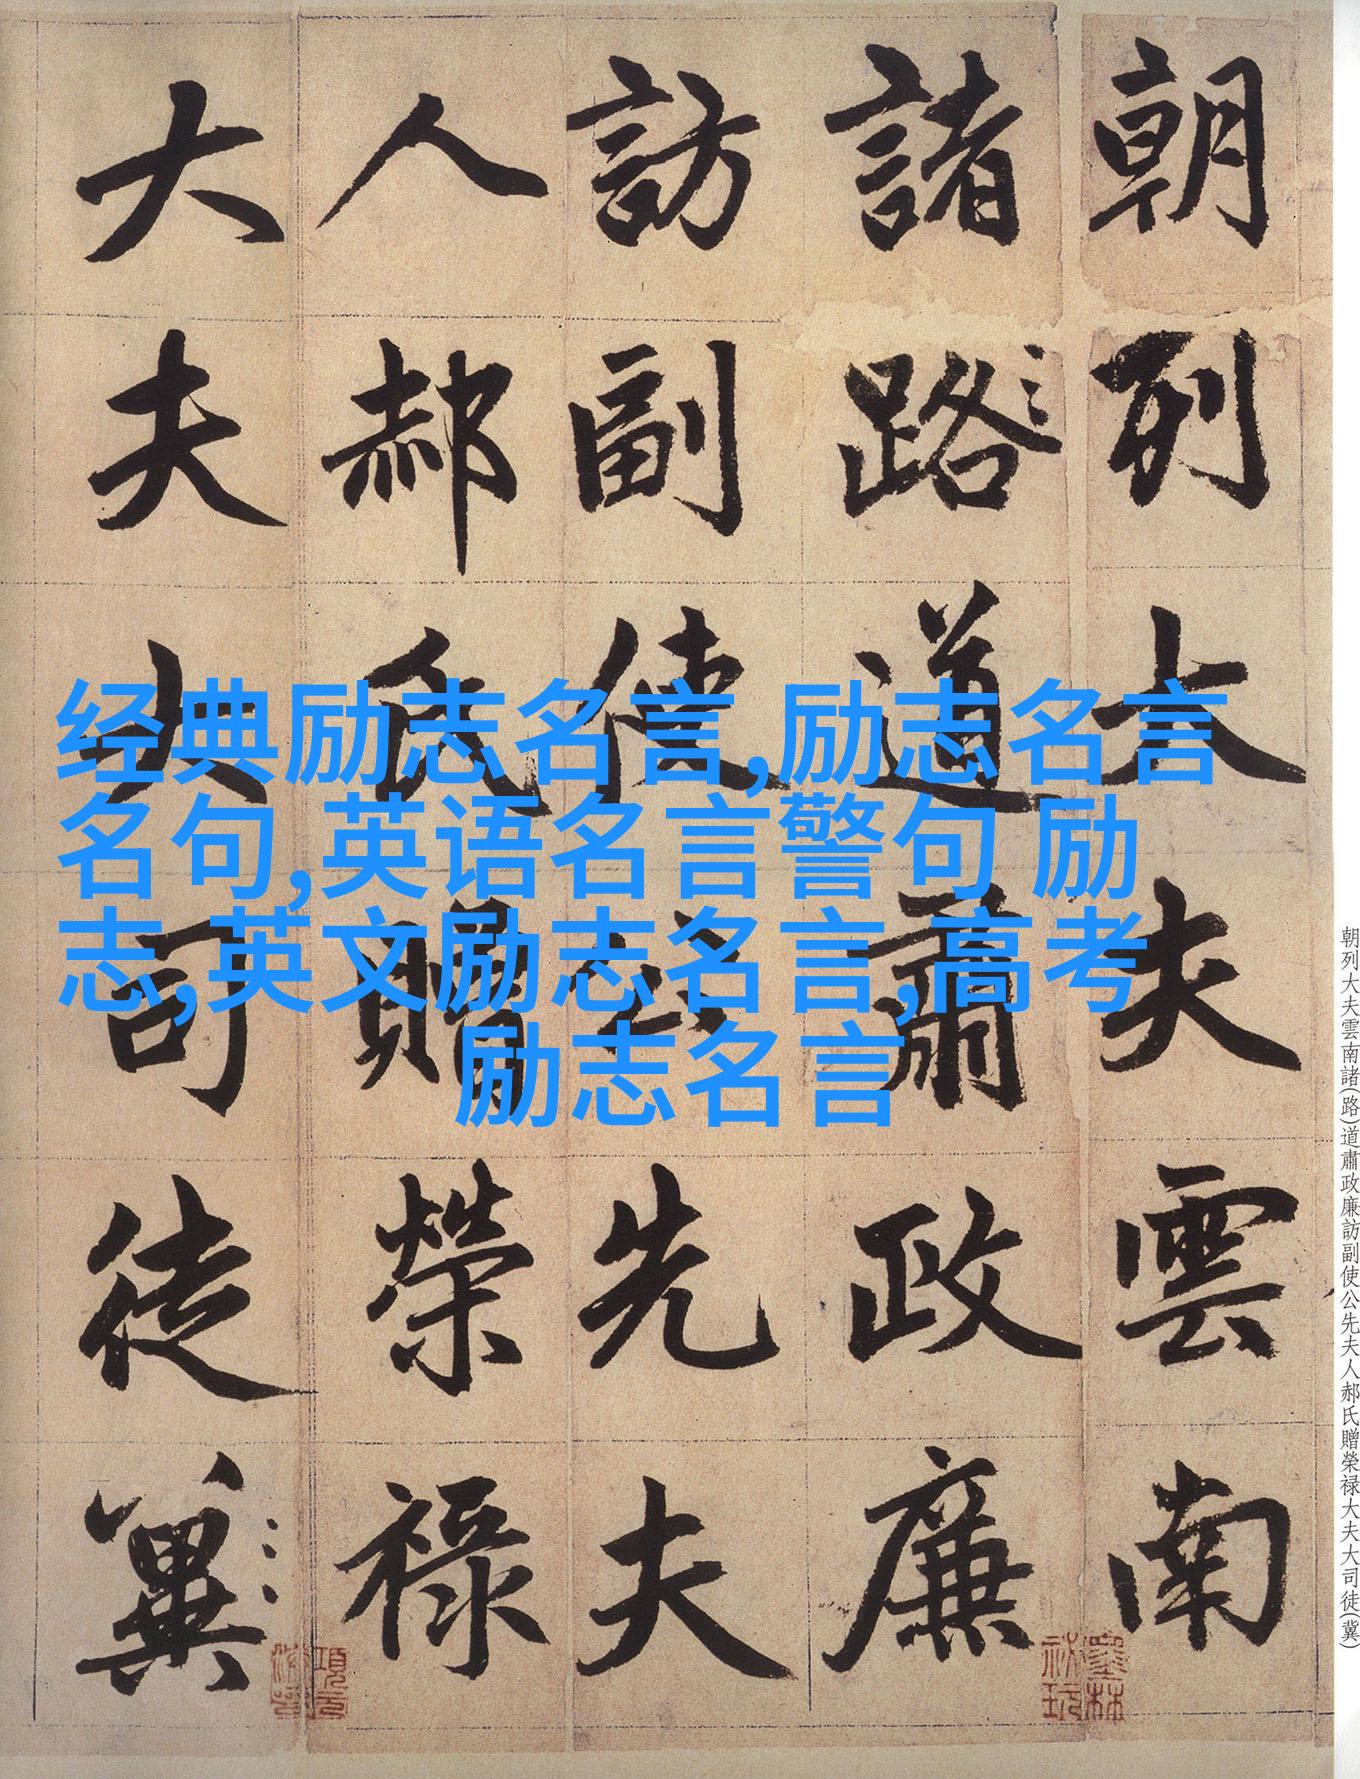 朝列大夫雲南
諸路道肅政廉
訪副使公先夫
人郝氏贈榮祿
大夫大司徒冀
经典励志名言,励志名言
名句,英语名言警句 励
志,英文励志名言,高考
励志名言
朝列大夫雲南諸(路)道肅政廉訪副使公先夫人郝氏贈榮禄大夫大司徒(冀)